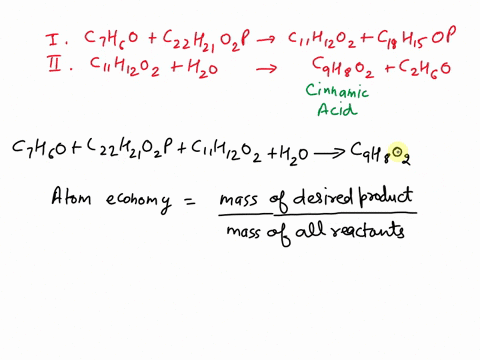 I. C7H6O + C22H21O2P → C11H12O2 + C18H15OP
II. C11H12O2 + H2O → C9H8O2 + C2H6O
Cinnamic
Acid
C7H6O + C22H21O2P + C11H12O2 + H2O → C9H8O2
Atom economy = mass of desired product
mass of all reactants